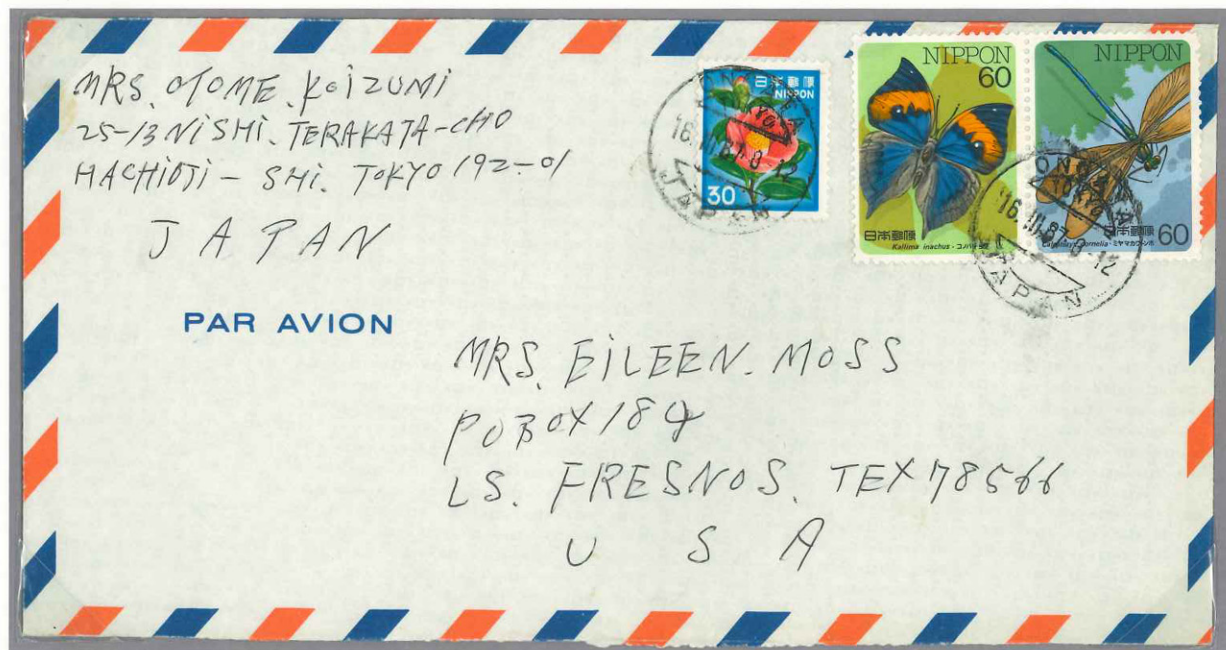 MRS. OTOME. KOiZUMi
25-13 NiSHi. TERAKATA-CHO
HACHIOJI - SHi. TOKYO 192-01
JAPAN
日本郵便
NIPPON
30
16.III.87.8-12
JAPAN
NIPPON
60
日本郵便
Kallima inachus・コノハチョウ
NIPPON
日本郵便 60
cornelia・ミヤマカワトンボ
16.III.87.8-12
JAPAN
PAR AVION
MRS. EiLEEN. MOSS
POBOX 184
LS. FRESNOS. TEX 78566
USA